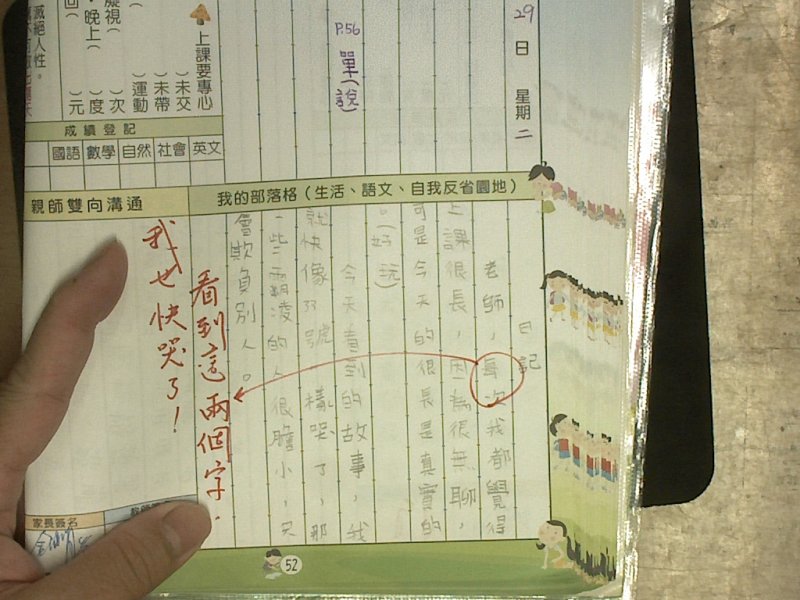 29日 星期二
P.56 單(說)
上課要專心
( )未交
( )未帶
( )運動
( )次
( )度
( )元
凝視
晚上
滅絕人性。
成績登記
國語 數學 自然 社會 英文
親師雙向溝通
我的部落格(生活、語文、自我反省園地)
日記
老師,每次我都覺得
上課很長,因為很無聊,
可是今天的很長是真實的
。(好玩)
今天看到的故事,我
就快像33號一樣哭了,那
一些霸凌的人很膽小,只
會欺負別人。
看到這兩個字,
我也快哭了!
家長簽名
52